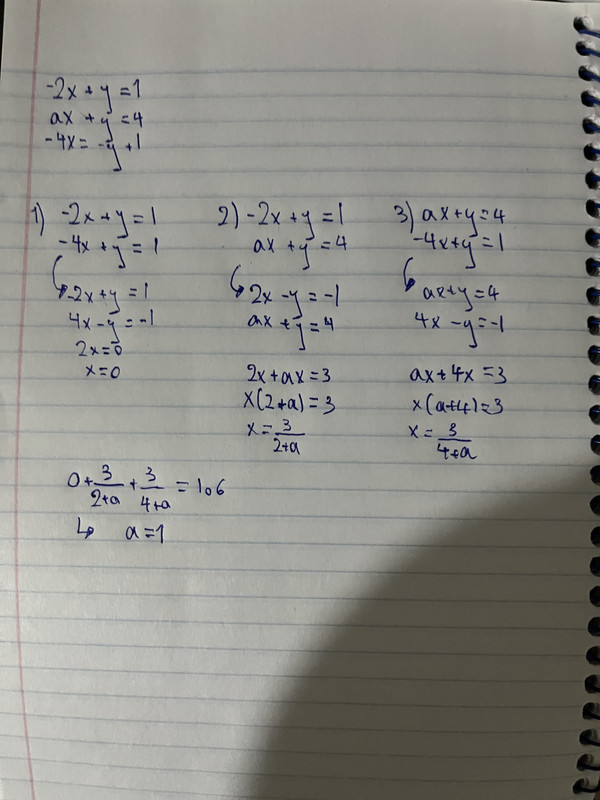 -2x + y = 1
ax + y = 4
-4x = -y + 1
1) -2x + y = 1
-4x + y = 1
-2x + y = 1
4x - y = -1
2x = 0
x = 0
2) -2x + y = 1
ax + y = 4
2x - y = -1
ax + y = 4
2x + ax = 3
x(2+a) = 3
x = 3/(2+a)
3) ax + y = 4
-4x + y = 1
ax + y = 4
4x - y = -1
ax + 4x = 3
x(a+4) = 3
x = 3/(4+a)
0 + 3/(2+a) + 3/(4+a) = 1.6
↳ a = 1